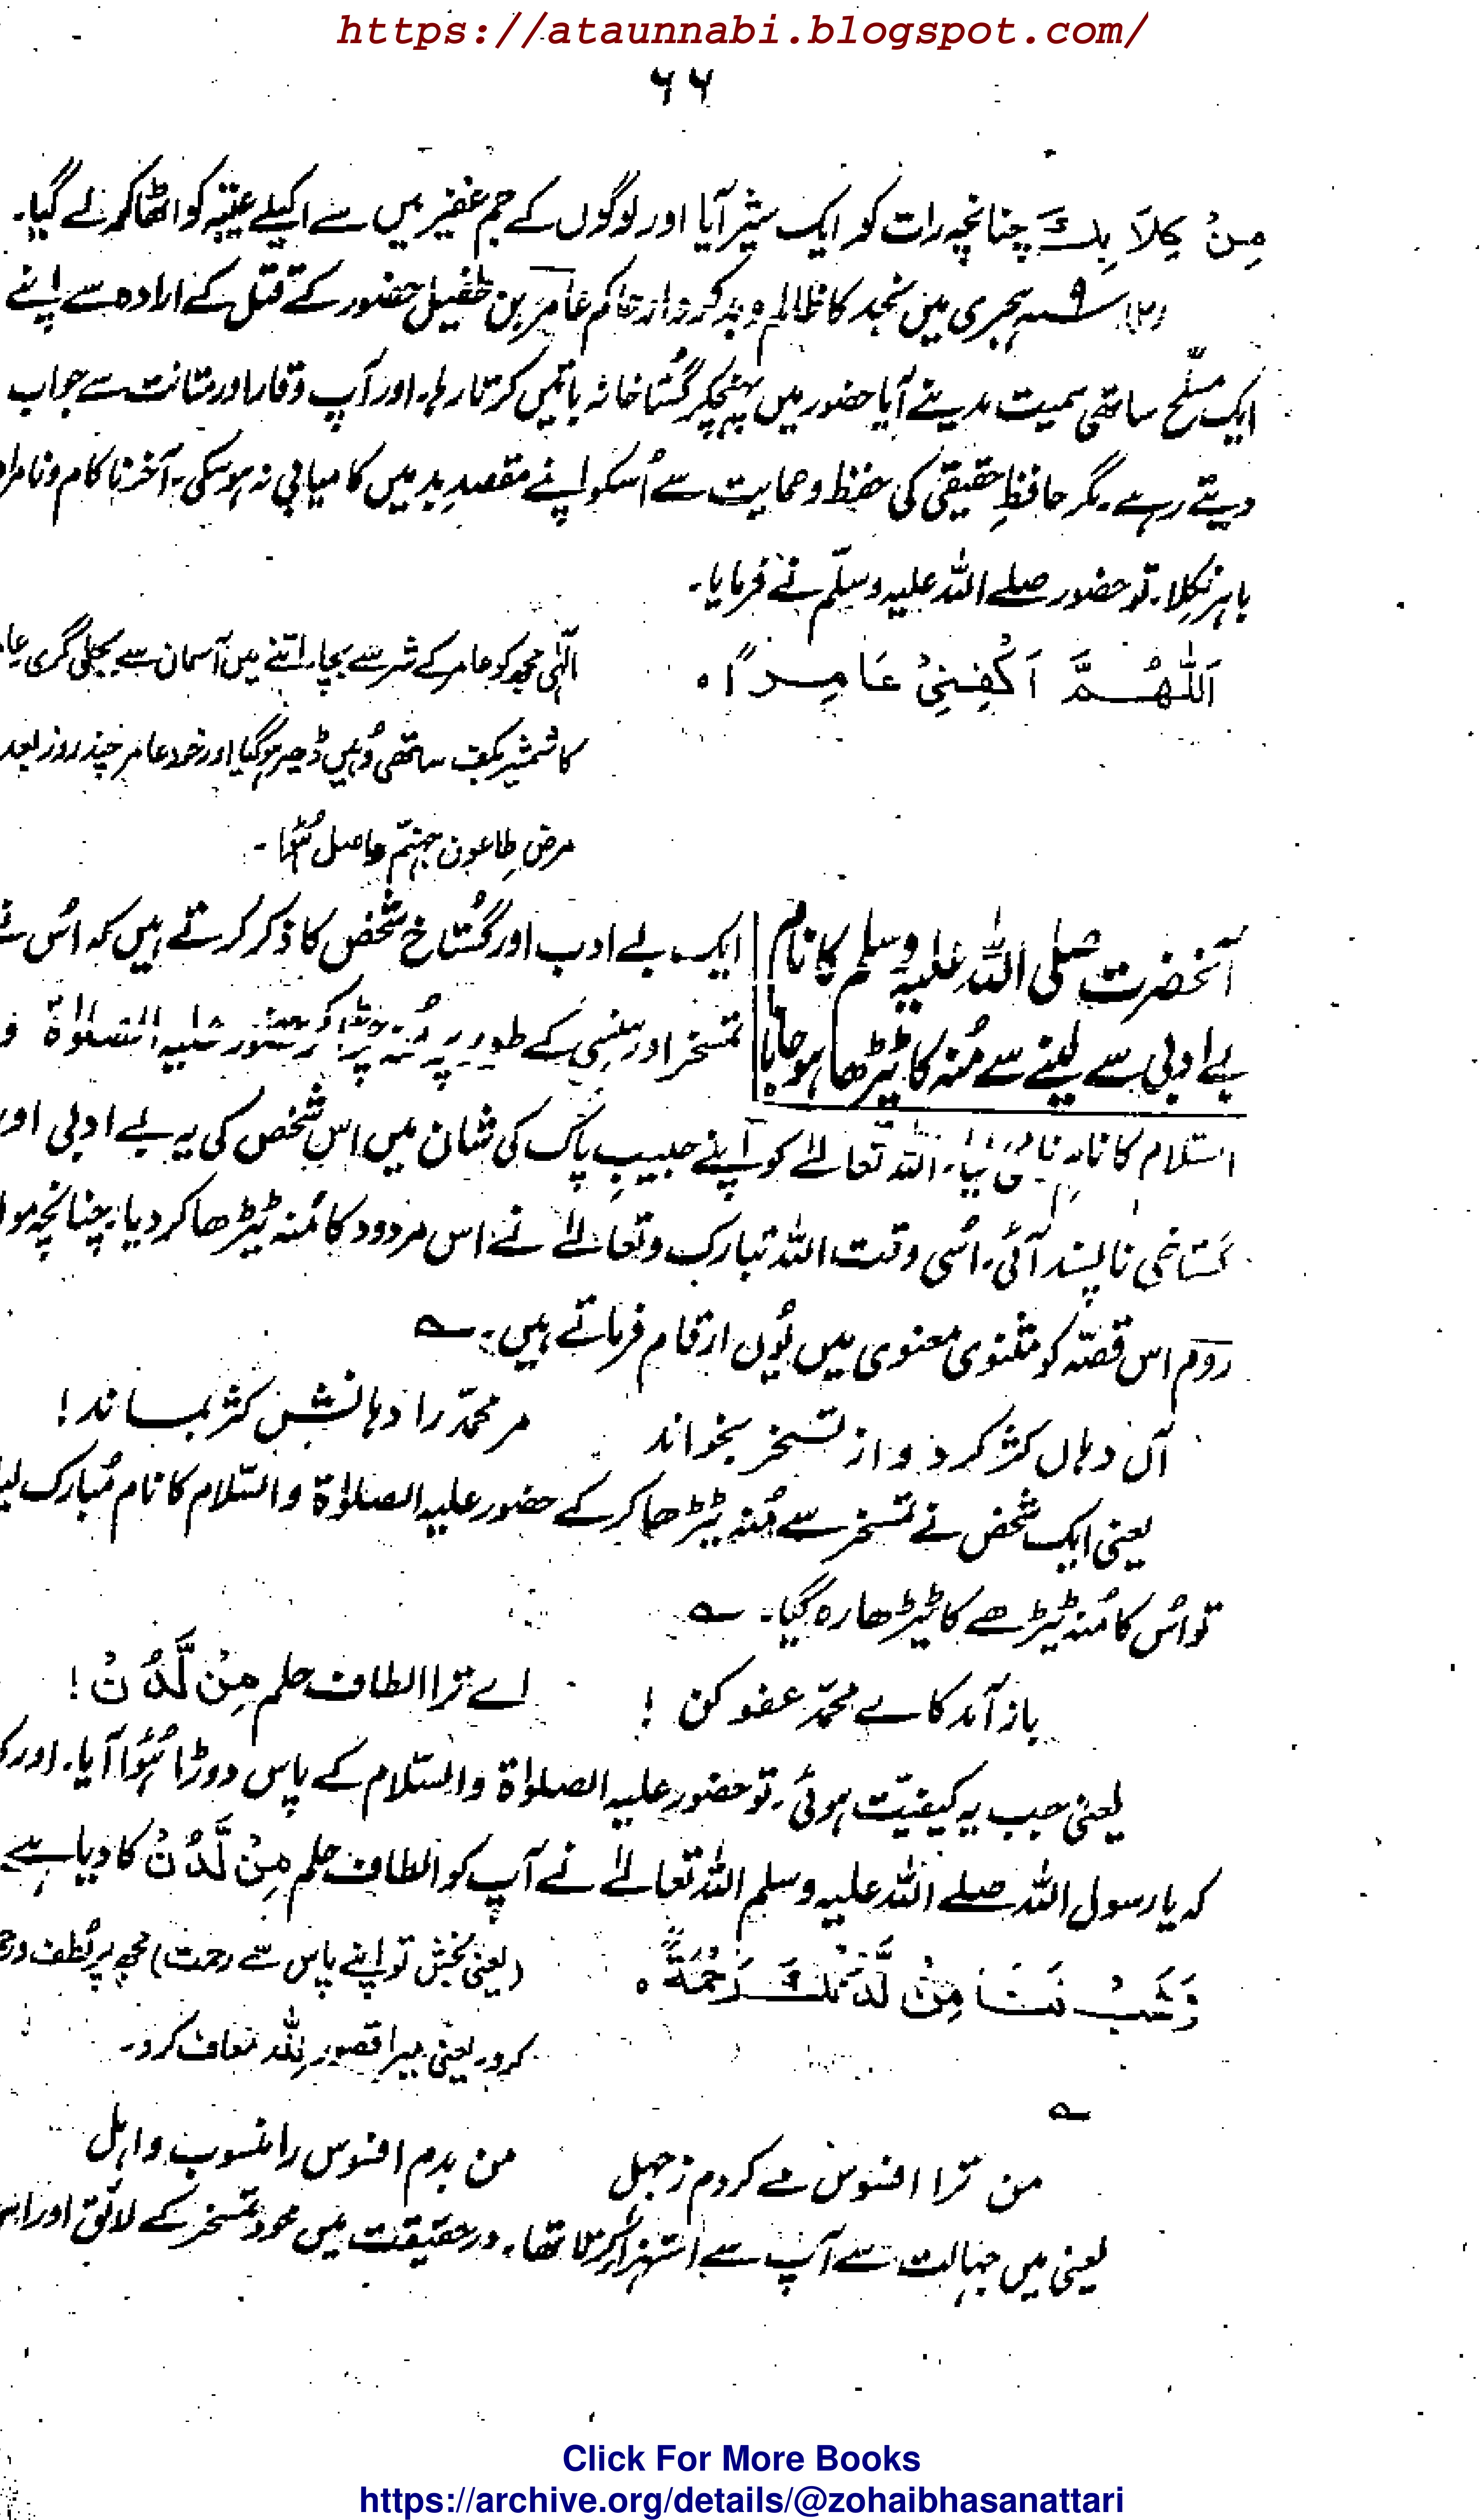 https://ataunnabi.blogspot.com/
۶۶
مِنْ كِلَا بِكَ چنانچہ رات کو ایک شیر آیا اور لوگوں کے جم غفیر میں سے اکیلے عتبہ کو اٹھا کر لے گیا۔
(۲) سنہ ۹ ہجری میں نجد کا ظالم و بدکردار حاکم عامر بن طفیل حضور کے قتل کے ارادہ سے اپنے
ایک مسلّح ساتھی سمیت مدینے آیا حضور میں پہنچکر گستاخانہ باتیں کرتا رہا۔ اور آپ وقار اور متانت سے جواب
دیتے رہے۔ مگر حافظِ حقیقی کی حفظ و حمایت سے اُسکو اپنے مقصدِ بد میں کامیابی نہ ہوسکی۔ آخر ناکام و نامراد
باہر نکلا۔ تو حضور صلے اللہ علیہ وسلّم نے فرمایا۔
اَللّٰهُمَّ اَكْفِنِيْ عَامِرًا۔ الٰہی مجھ کو عامر کے شر سے بچا۔ اتنے میں آسمان سے بجلی گری
کا شمشیر بکف ساتھی وُہیں ڈھیر ہوگیا اور خود عامر چند روز بعد
مرضِ طاعون جہنّم واصل ہُوا۔
آنحضرت صلی اللہ علیہ وسلم کا نام
بے ادبی سے لینے سے مُنہ کا ٹیڑھا ہو جانا
ایک بے ادب اور گستاخ شخص کا ذکر کرتے ہیں کہ اُس نے
تمسخر اور ہنسی کے طور پر مُنہ چڑا کر حضور علیہ الصلوٰۃ و
السّلام کا نامِ نامی لیا۔ اللہ تعالےٰ کو اپنے حبیبِ پاک کی شان میں اس شخص کی یہ بے ادبی اور
گستاخی ناپسند آئی۔ اُسی وقت اللہ تبارک وتعالےٰ نے اس مردود کا مُنہ ٹیڑھا کر دیا۔ چنانچہ
روم اس قصّہ کو مثنوی معنوی میں یُوں ارقام فرماتے ہیں۔ ؎
آں دہاں کژ کرد و از تسخر بخواند مر محمدؐ را دہانش کژ بماند!
یعنی ایک شخص نے تمسخر سے مُنہ ٹیڑھا کر کے حضور علیہ الصلوٰۃ والسّلام کا نام مُبارک لیا
تو اُس کا مُنہ ٹیڑھے کا ٹیڑھا رہ گیا۔ ؎
باز آمد کاے محمدؐ عفو کن! اے ترا الطاف حلم مِنْ لَّدُنْ!
یعنی جب یہ کیفیّت ہوئی۔ تو حضور علیہ الصلوٰۃ والسّلام کے پاس دوڑا ہُوا آیا۔ اور
کہ یا رسول اللہ صلے اللہ علیہ وسلم اللہ تعالےٰ نے آپ کو الطاف حلم مِنْ لَّدُنْ کا دیا ہے
وَهَبْ لَنَا مِنْ لَّدُنْكَ رَحْمَةً۔ (یعنی بخش تو اپنے پاس سے رحمت) مجھ پر لُطف
کرو۔ یعنی میرا قصور للہ معاف کرو۔
؎
من ترا افسوس مے کردم زجہل من بدم افسوس را منسوب و اہل
یعنی میں جہالت سے آپ سے استہزا کرتا تھا۔ درحقیقت میں خود تمسخر کے لائق اور
Click For More Books
https://archive.org/details/@zohaibhasanattari